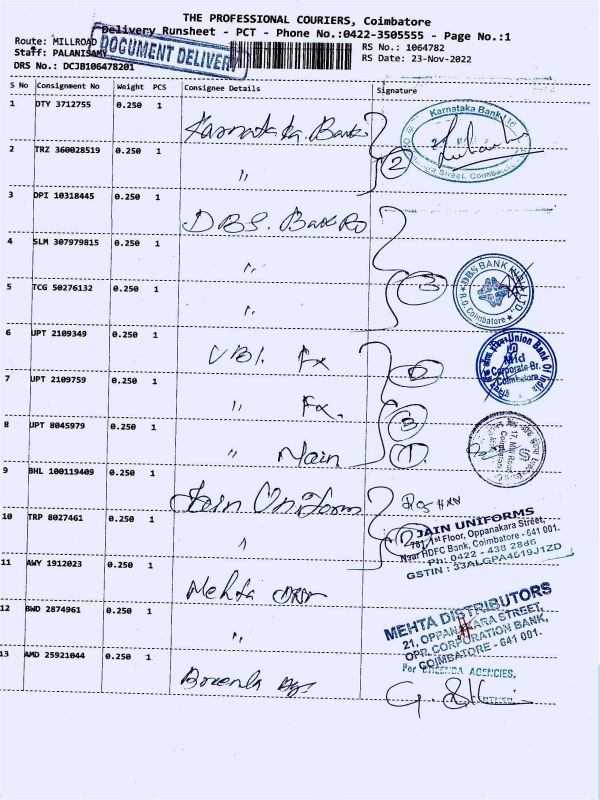 THE PROFESSIONAL COURIERS, Coimbatore
Delivery Runsheet - PCT - Phone No.:0422-3505555 - Page No.:1
Route: MILLROAD
RS No.: 1064782
Staff: PALANISAMY
RS Date: 23-Nov-2022
DRS No.: DCJB106478201
DOCUMENT DELIVERY
S No Consignment No Weight PCS Consignee Details Signature
1 DTY 3712755 0.250 1 Karnataka Bank
Karnataka Bank Ltd.
Street, Coimbatore
2 TRZ 360028519 0.250 1 〃 2
3 DPI 10318445 0.250 1 DBS. Bank RO
4 SLM 307979815 0.250 1 〃
5 TCG 50276132 0.250 1 〃 3
DBS BANK LTD.
R.O. Coimbatore
6 UPT 2109349 0.250 1 UBI. Fx
Union Bank Of India
Mid Corporate Br.
Coimbatore
7 UPT 2109759 0.250 1 〃 Fx.
8 UPT 8045979 0.250 1 〃 Main 1
17, Mill Road
Coimbatore
9 BHL 100119409 0.250 1 Jain Uniform
10 TRP 8027461 0.250 1 〃 2
JAIN UNIFORMS
781, 1st Floor, Oppanakara Street,
Near HDFC Bank, Coimbatore - 641 001.
Ph: 0422 - 438 2886
GSTIN : 33ALGPA4619J1ZD
11 AWY 1912023 0.250 1 Mehta
12 BWD 2874961 0.250 1 〃
MEHTA DISTRIBUTORS
21, OPPANAKARA STREET,
OPP. CORPORATION BANK,
COIMBATORE - 641 001.
13 AMD 25921044 0.250 1
For BREENDA AGENCIES,